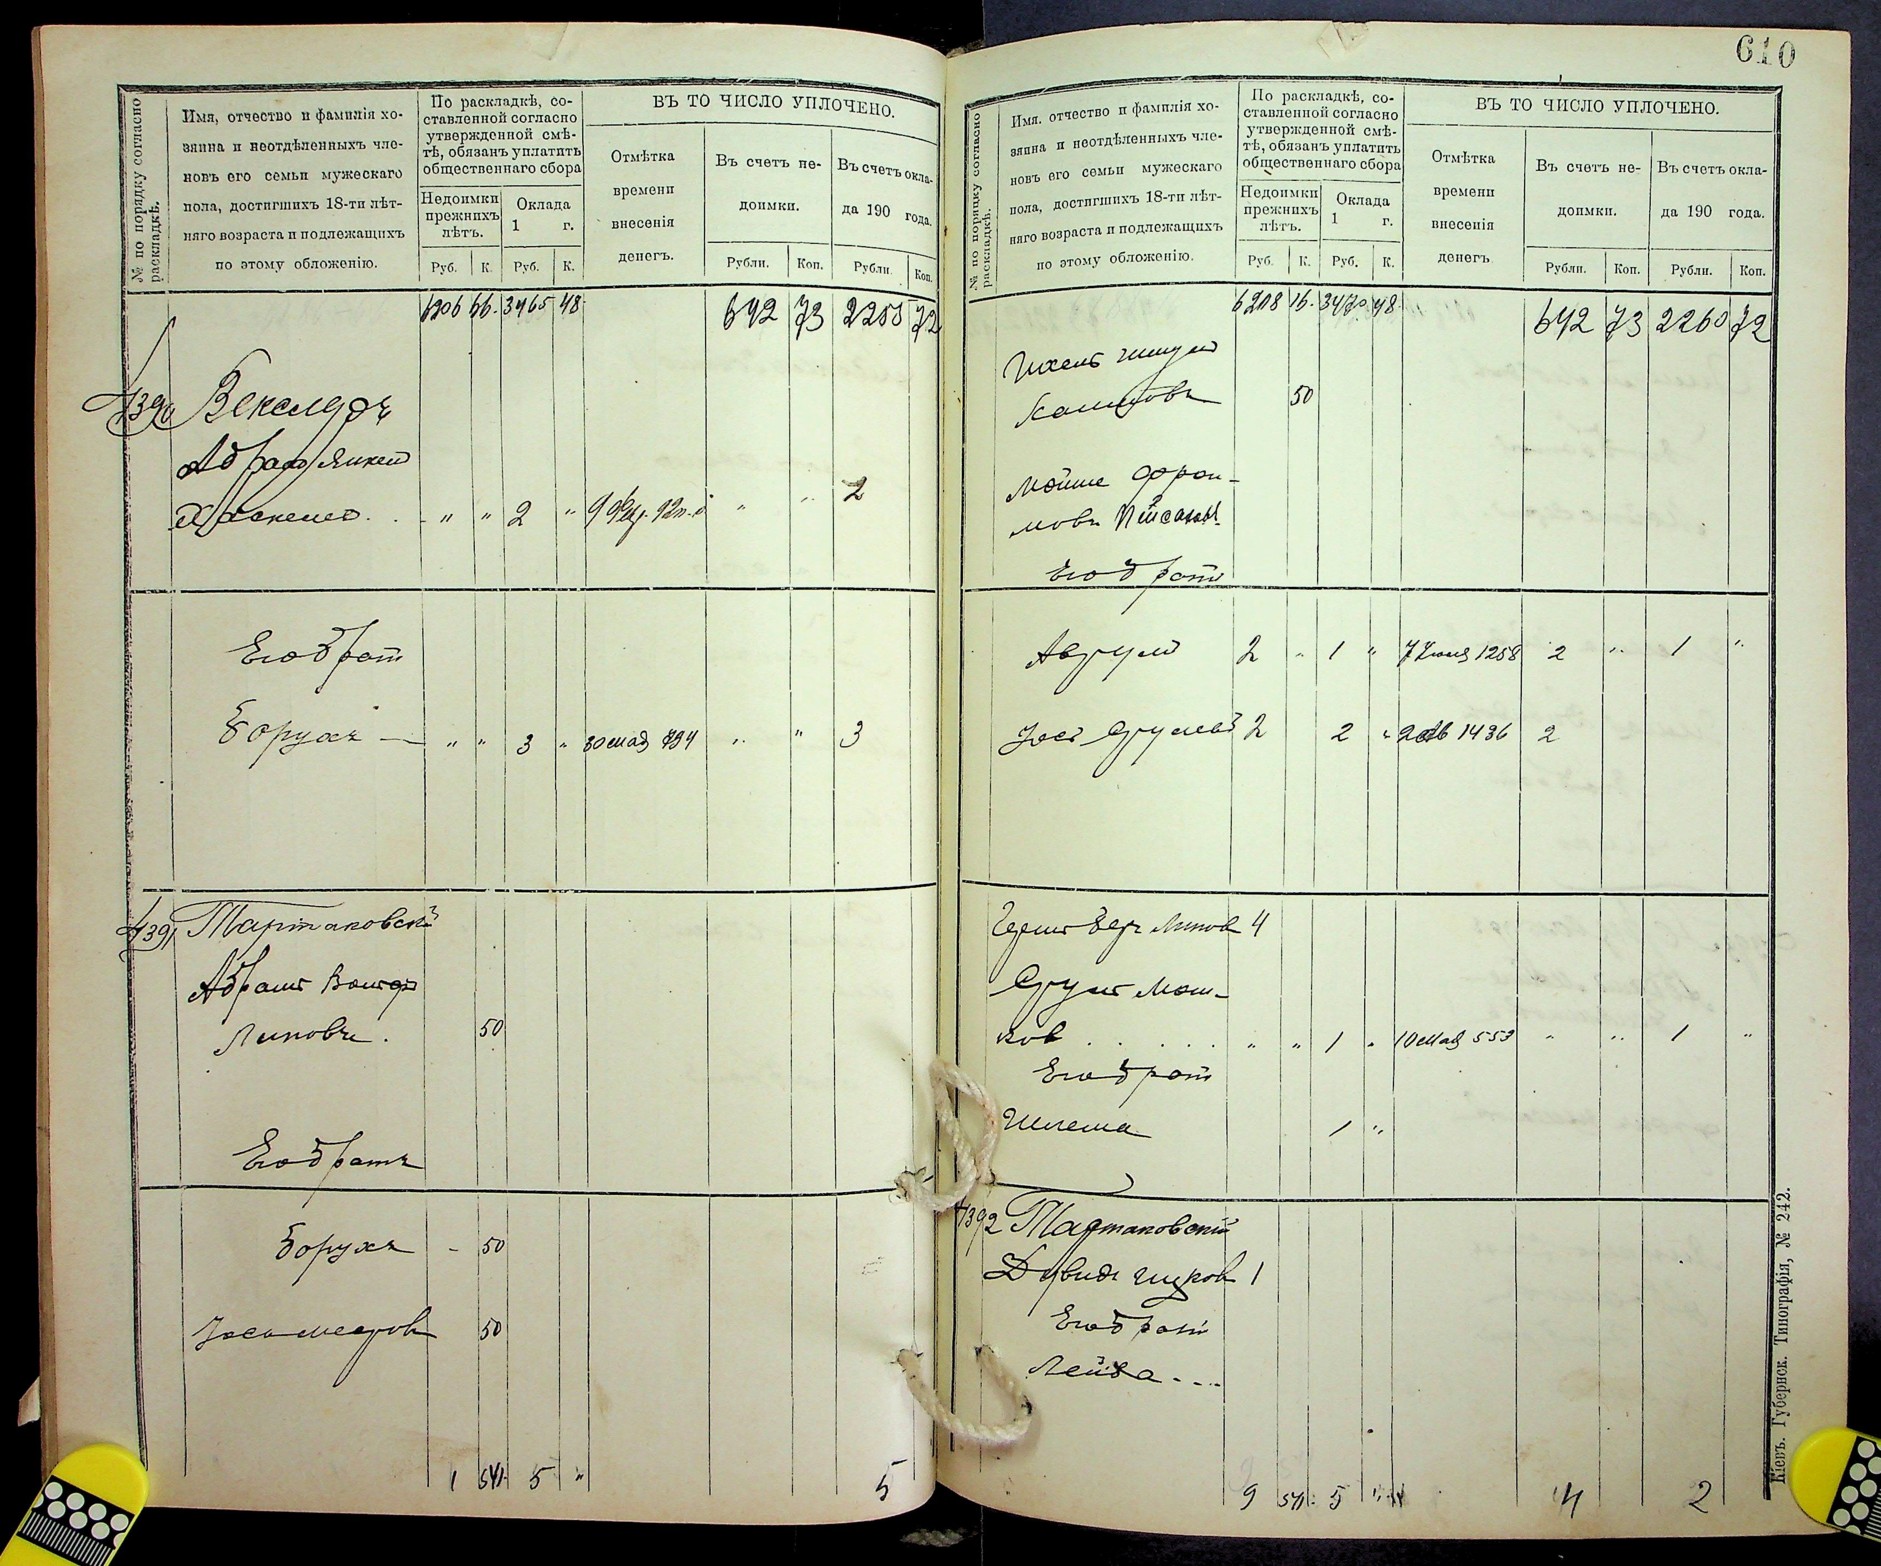 610
№ по порядку согласно раскладкѣ.
Имя, отчество и фамилія хо-
зяина и неотдѣленныхъ чле-
новъ его семьи мужескаго
пола, достигшихъ 18-ти лѣт-
няго возраста и подлежащихъ
по этому обложенію.
По раскладкѣ, со-
ставленной согласно
утвержденной смѣ-
тѣ, обязанъ уплатить
общественнаго сбора
Недоимки
прежнихъ
лѣтъ.
Оклада
1 г.
Руб. К. Руб. К.
ВЪ ТО ЧИСЛО УПЛОЧЕНО.
Отмѣтка
времени
внесенія
денегъ.
Въ счетъ не-
доимки.
Въ счетъ окла-
да 190 года.
Рубли. Коп. Рубли. Коп.
6206 66. 3465 48. 642 73 2255 72
4390 Векслеръ
Абрам Янкел
" " 2 " " " 2
Его брат
Борухъ — " " 3 " 30 мая 794 " " 3
4391 Тартаковскій
Абрам
Липовъ. 50
Его братъ
Борухъ - 50
50
1 50 5 " 5
№ по порядку согласно раскладкѣ.
Имя, отчество и фамилія хо-
зяина и неотдѣленныхъ чле-
новъ его семьи мужескаго
пола, достигшихъ 18-ти лѣт-
няго возраста и подлежащихъ
по этому обложенію.
По раскладкѣ, со-
ставленной согласно
утвержденной смѣ-
тѣ, обязанъ уплатить
общественнаго сбора
Недоимки
прежнихъ
лѣтъ.
Оклада
1 г.
Руб. К. Руб. К.
ВЪ ТО ЧИСЛО УПЛОЧЕНО.
Отмѣтка
времени
внесенія
денегъ.
Въ счетъ не-
доимки.
Въ счетъ окла-
да 190 года.
Рубли. Коп. Рубли. Коп.
6208 16. 3470 48. 642 73 2260 72
50
Мойше Фрои-
мовъ
Его брат
2 " 1 " 7 1258 2 " 1 "
Іось Срулевъ 2 2 " 1436 2
Герш Бер Липов 4
Сруль Мош-
ков . . . . . " " 1 " 10 мая 553 " " 1 "
Его брат
Шлема 1 "
4392 Тартаковскій
Давидъ 1
Его брат
Лейба . . .
9 50 5 " 4 2
Кіевъ. Губернск. Типографія, № 242.